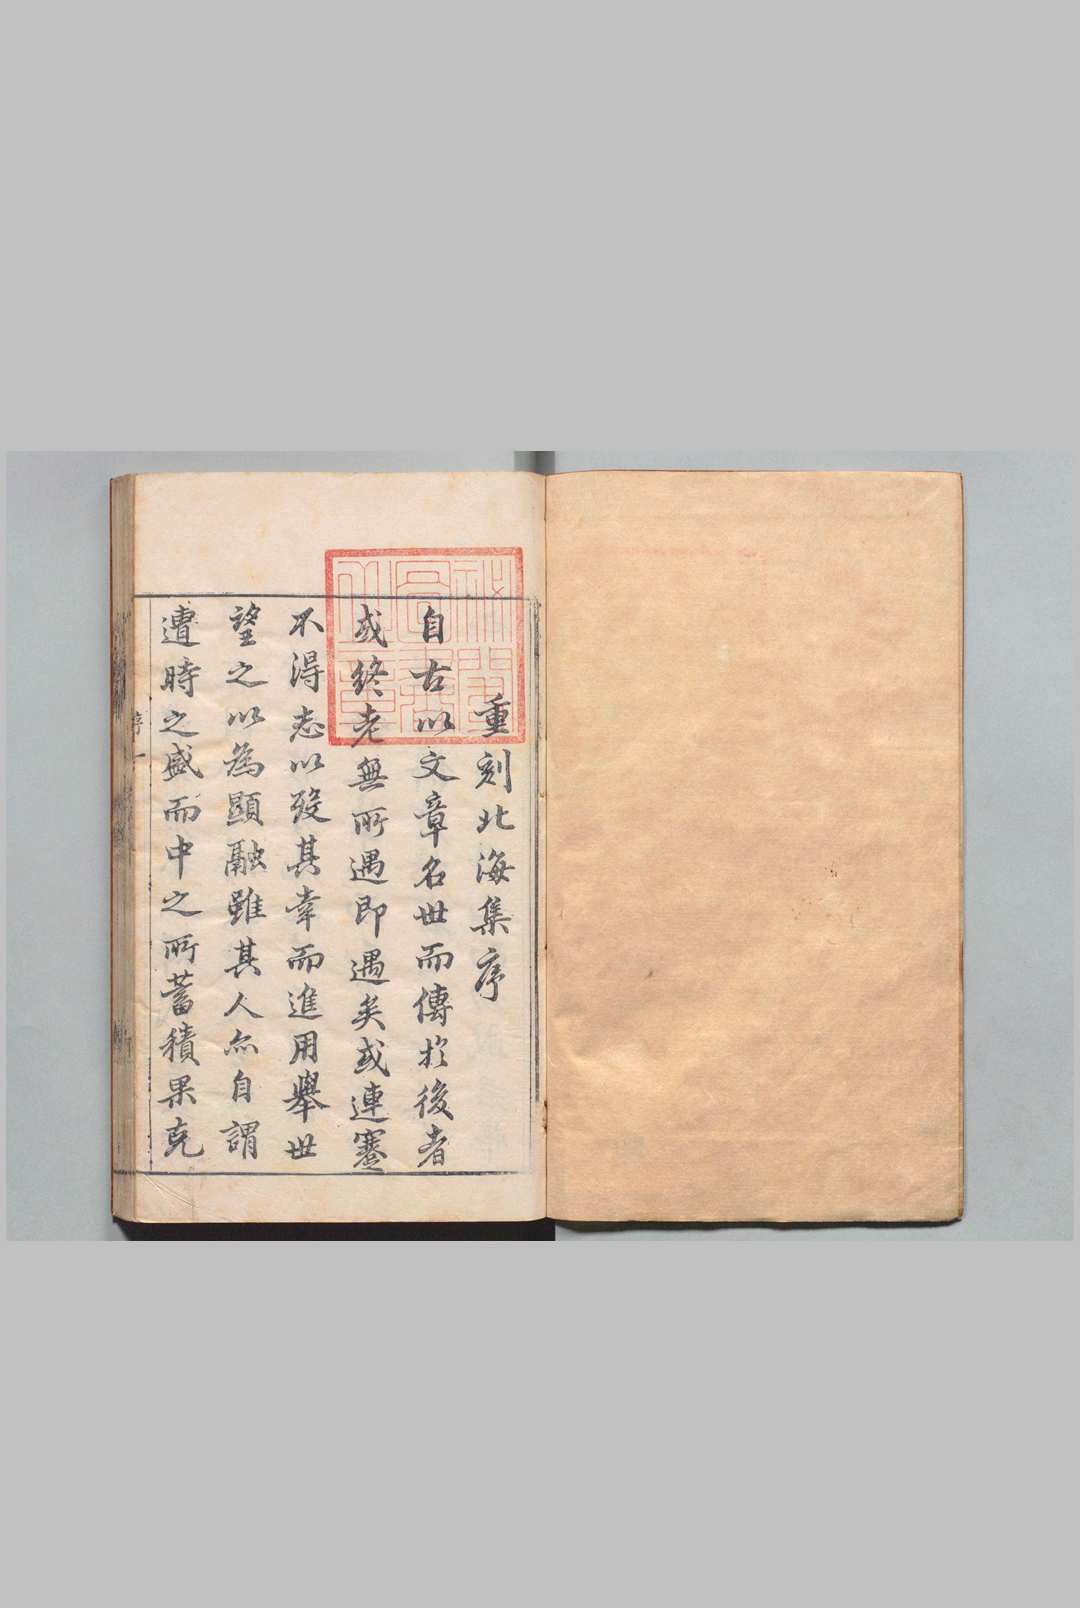 重刻北海集序
自古以文章名世而傳於後者
或終老無所遇即遇矣或連蹇
不得志以歿其幸而進用舉世
望之以為顯融雖其人亦自謂
遭時之盛而中之所蓄積果克
序
一